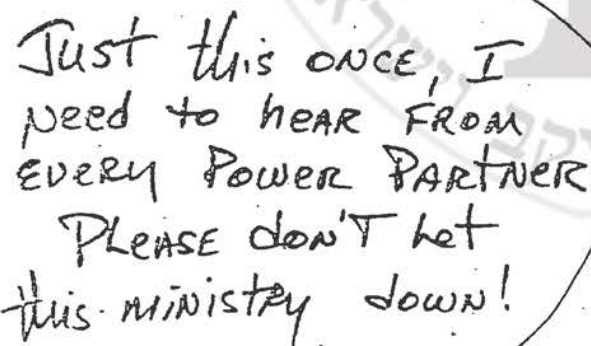 Just this once, I
need to hear from
every Power Partner
Please don't let
this ministry down!